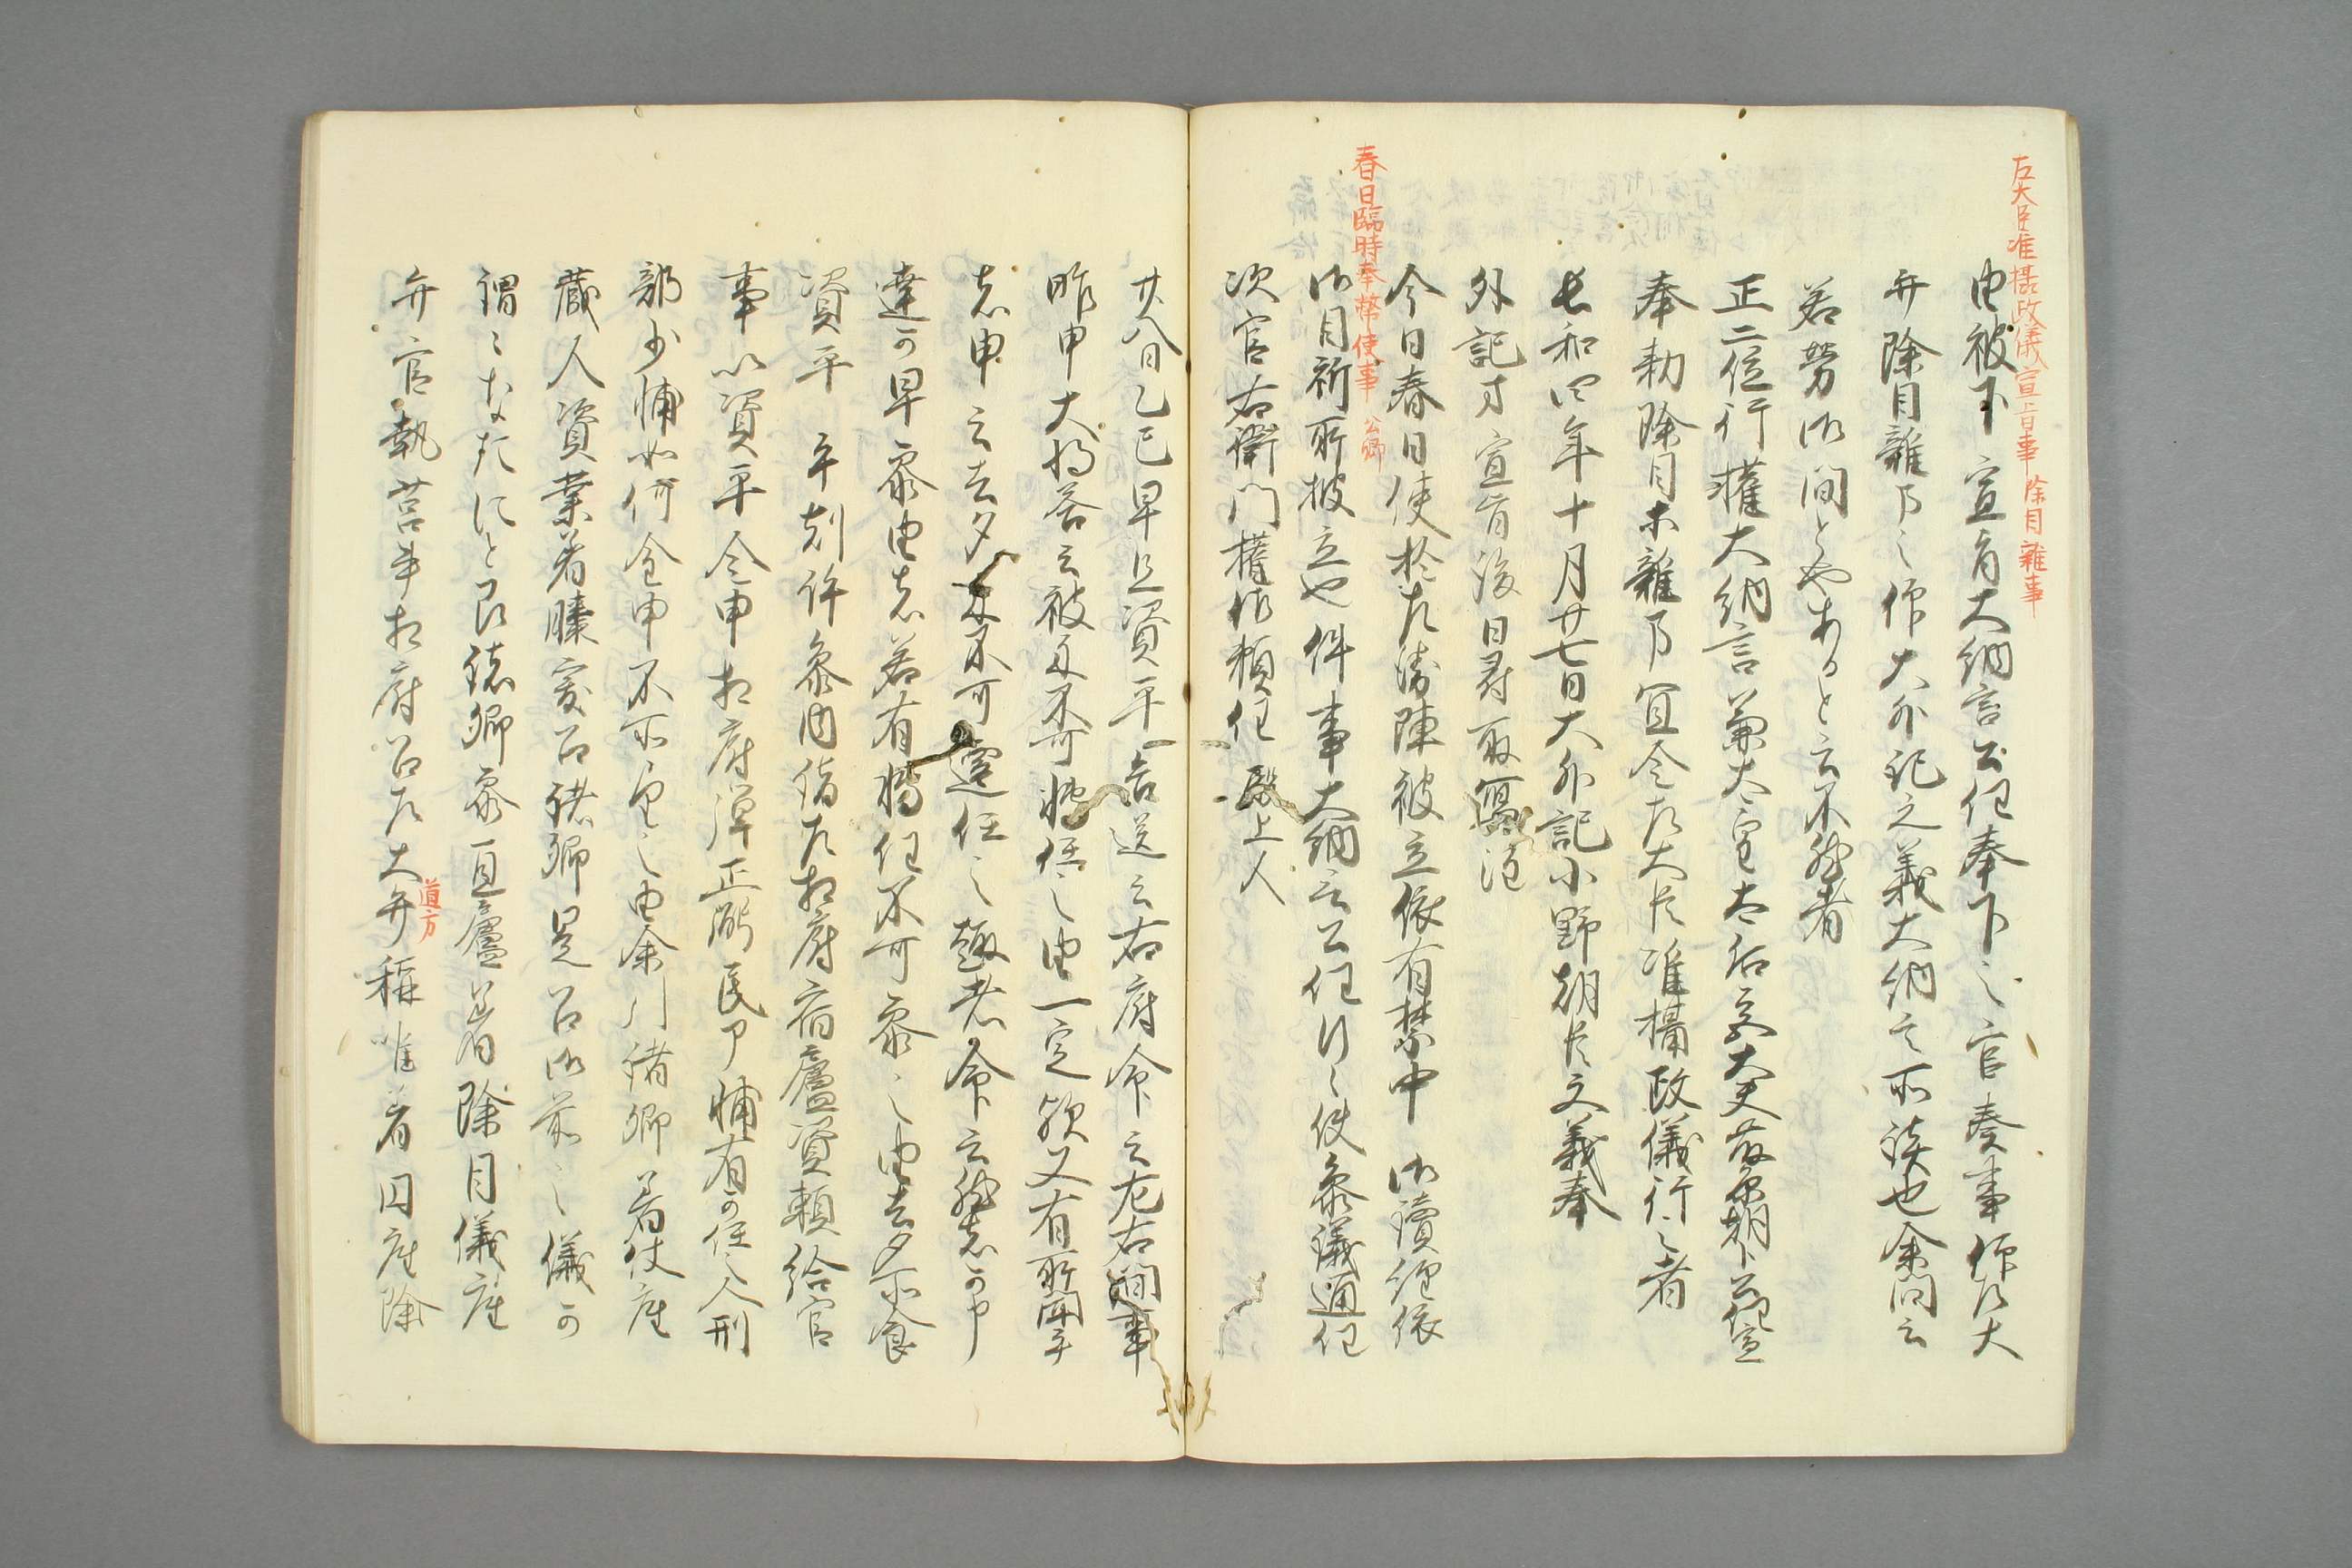 左大臣准摂政儀宣旨事 除目雜事
由被下宣旨大納言公任奉下之官奏事仰左大
弁除目雜事之仰大外記文義大納言所談也余問云
若勞御間とやあると云不然者
正二位行權大納言兼太皇太后宮大夫藤原朝臣公任宣
奉勅除目等雜事宜令左大臣准攝政儀行之者
長和四年十月廿七日大外記小野朝臣文義奉
外記等宣旨後日尋取寫注
春日臨時奉幣使事 公卿
今日春日使於左衛陣被立依有禁中御讀經依
御目祈所被立也件事大納言公任行之使參議通任
次官右衛門權佐頼任殿上人
廿八日乙巳早旦資平告送云右府命云左右間事
昨申大将答云被不可任之由一定欤又有所聞乎
者申云去夕不可遷任之趣者命云然者可申
達可早參由者若有轉任不可參之由去夕所食
資平 午剋許參内詣左相府宿廬資頼給官
事以資平令申相府弾正弼民卩輔有可任之人刑
部少輔如何令申不所望之由余 諸卿著仗座
蔵人資業著膝突召諸卿是召御前之儀可
謂之なたにと即諸卿參直廬著除目儀座
弁官執筥等相府召左大弁稱唯著円座除
道方